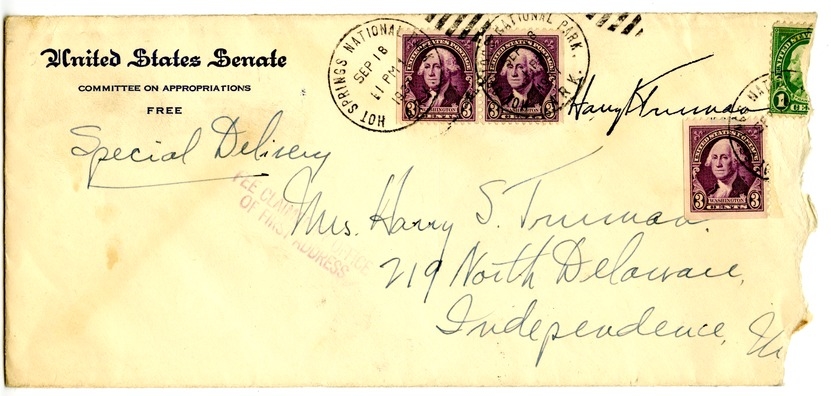 United States Senate
COMMITTEE ON APPROPRIATIONS
FREE
HOT SPRINGS NATIONAL
SEP 18
11 PM
UNITED STATES POSTAGE
3 WASHINGTON 3
CENTS
UNITED STATES POSTAGE
3 WASHINGTON 3
CENTS
NATIONAL PARK.
Harry S Truman
1
UNITED STATES POSTAGE
3 WASHINGTON 3
CENTS
Special Delivery
FEE CLAIMED OFFICE
OF FIRST ADDRESS
Mrs. Harry S. Truman.
219 North Delaware,
Independence,